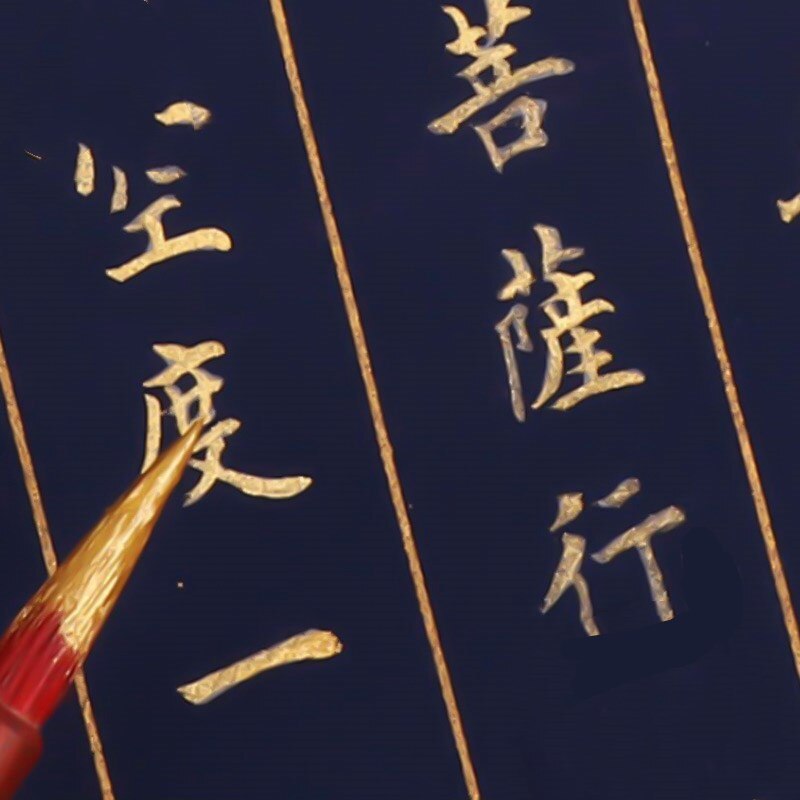 菩薩行
空度一